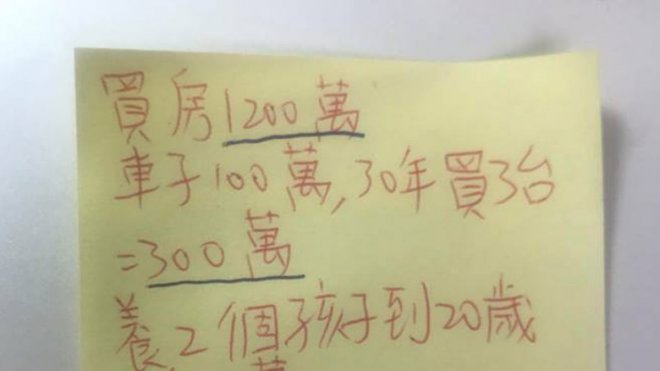 買房1200萬
車子100萬,30年買3台
=300萬
養2個孩子到20歲